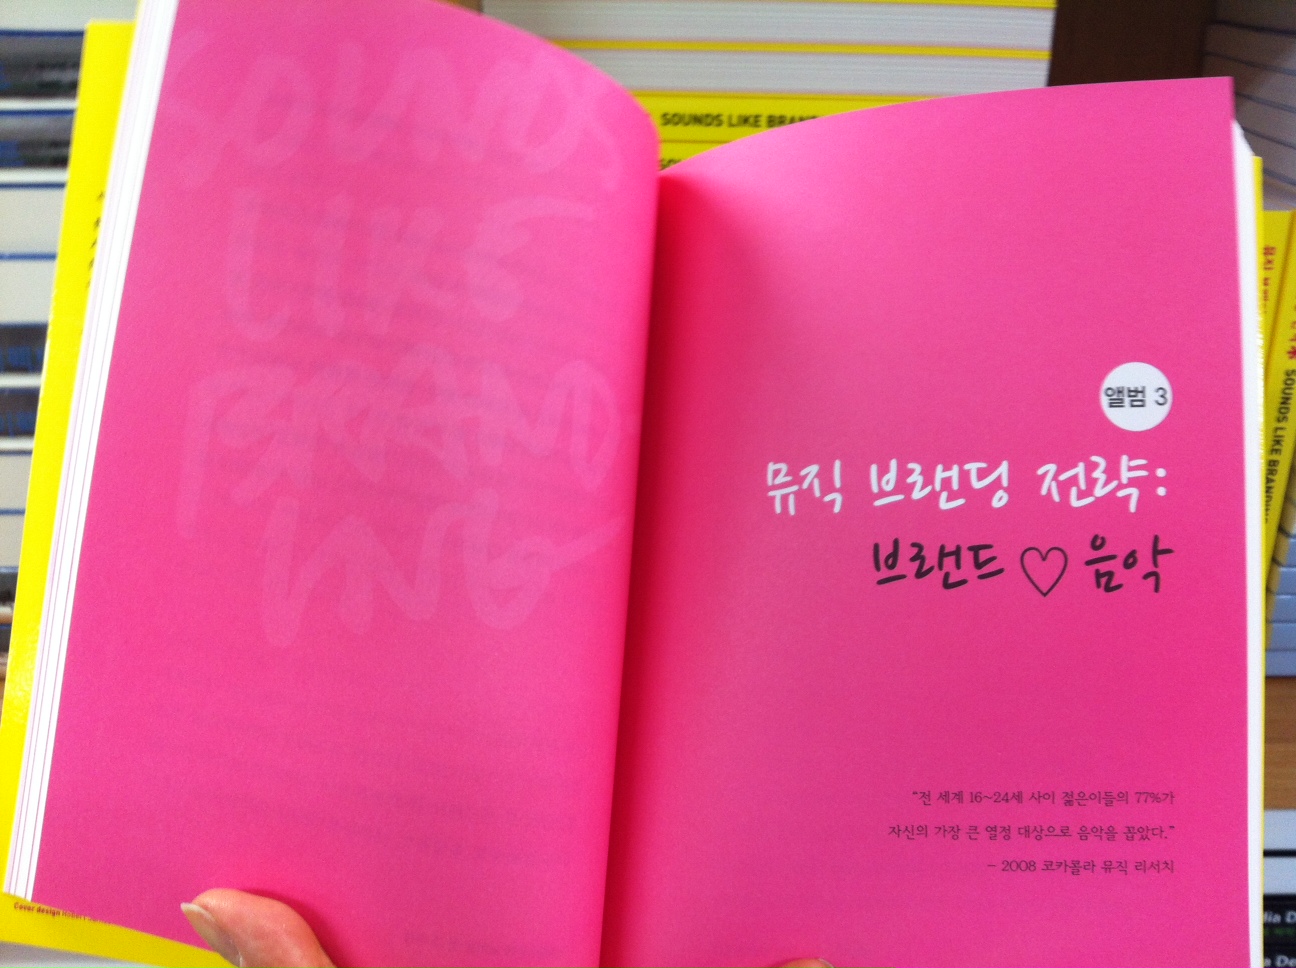 SOUNDS
LIKE
BRAND
ING
SOUNDS LIKE
앨범 3
뮤직 브랜딩 전략:
브랜드 ♡ 음악
“전 세계 16~24세 사이 젊은이들의 77%가
자신의 가장 큰 열정 대상으로 음악을 꼽았다.”
- 2008 코카콜라 뮤직 리서치
SOUNDS LIKE BRANDING
Cover design